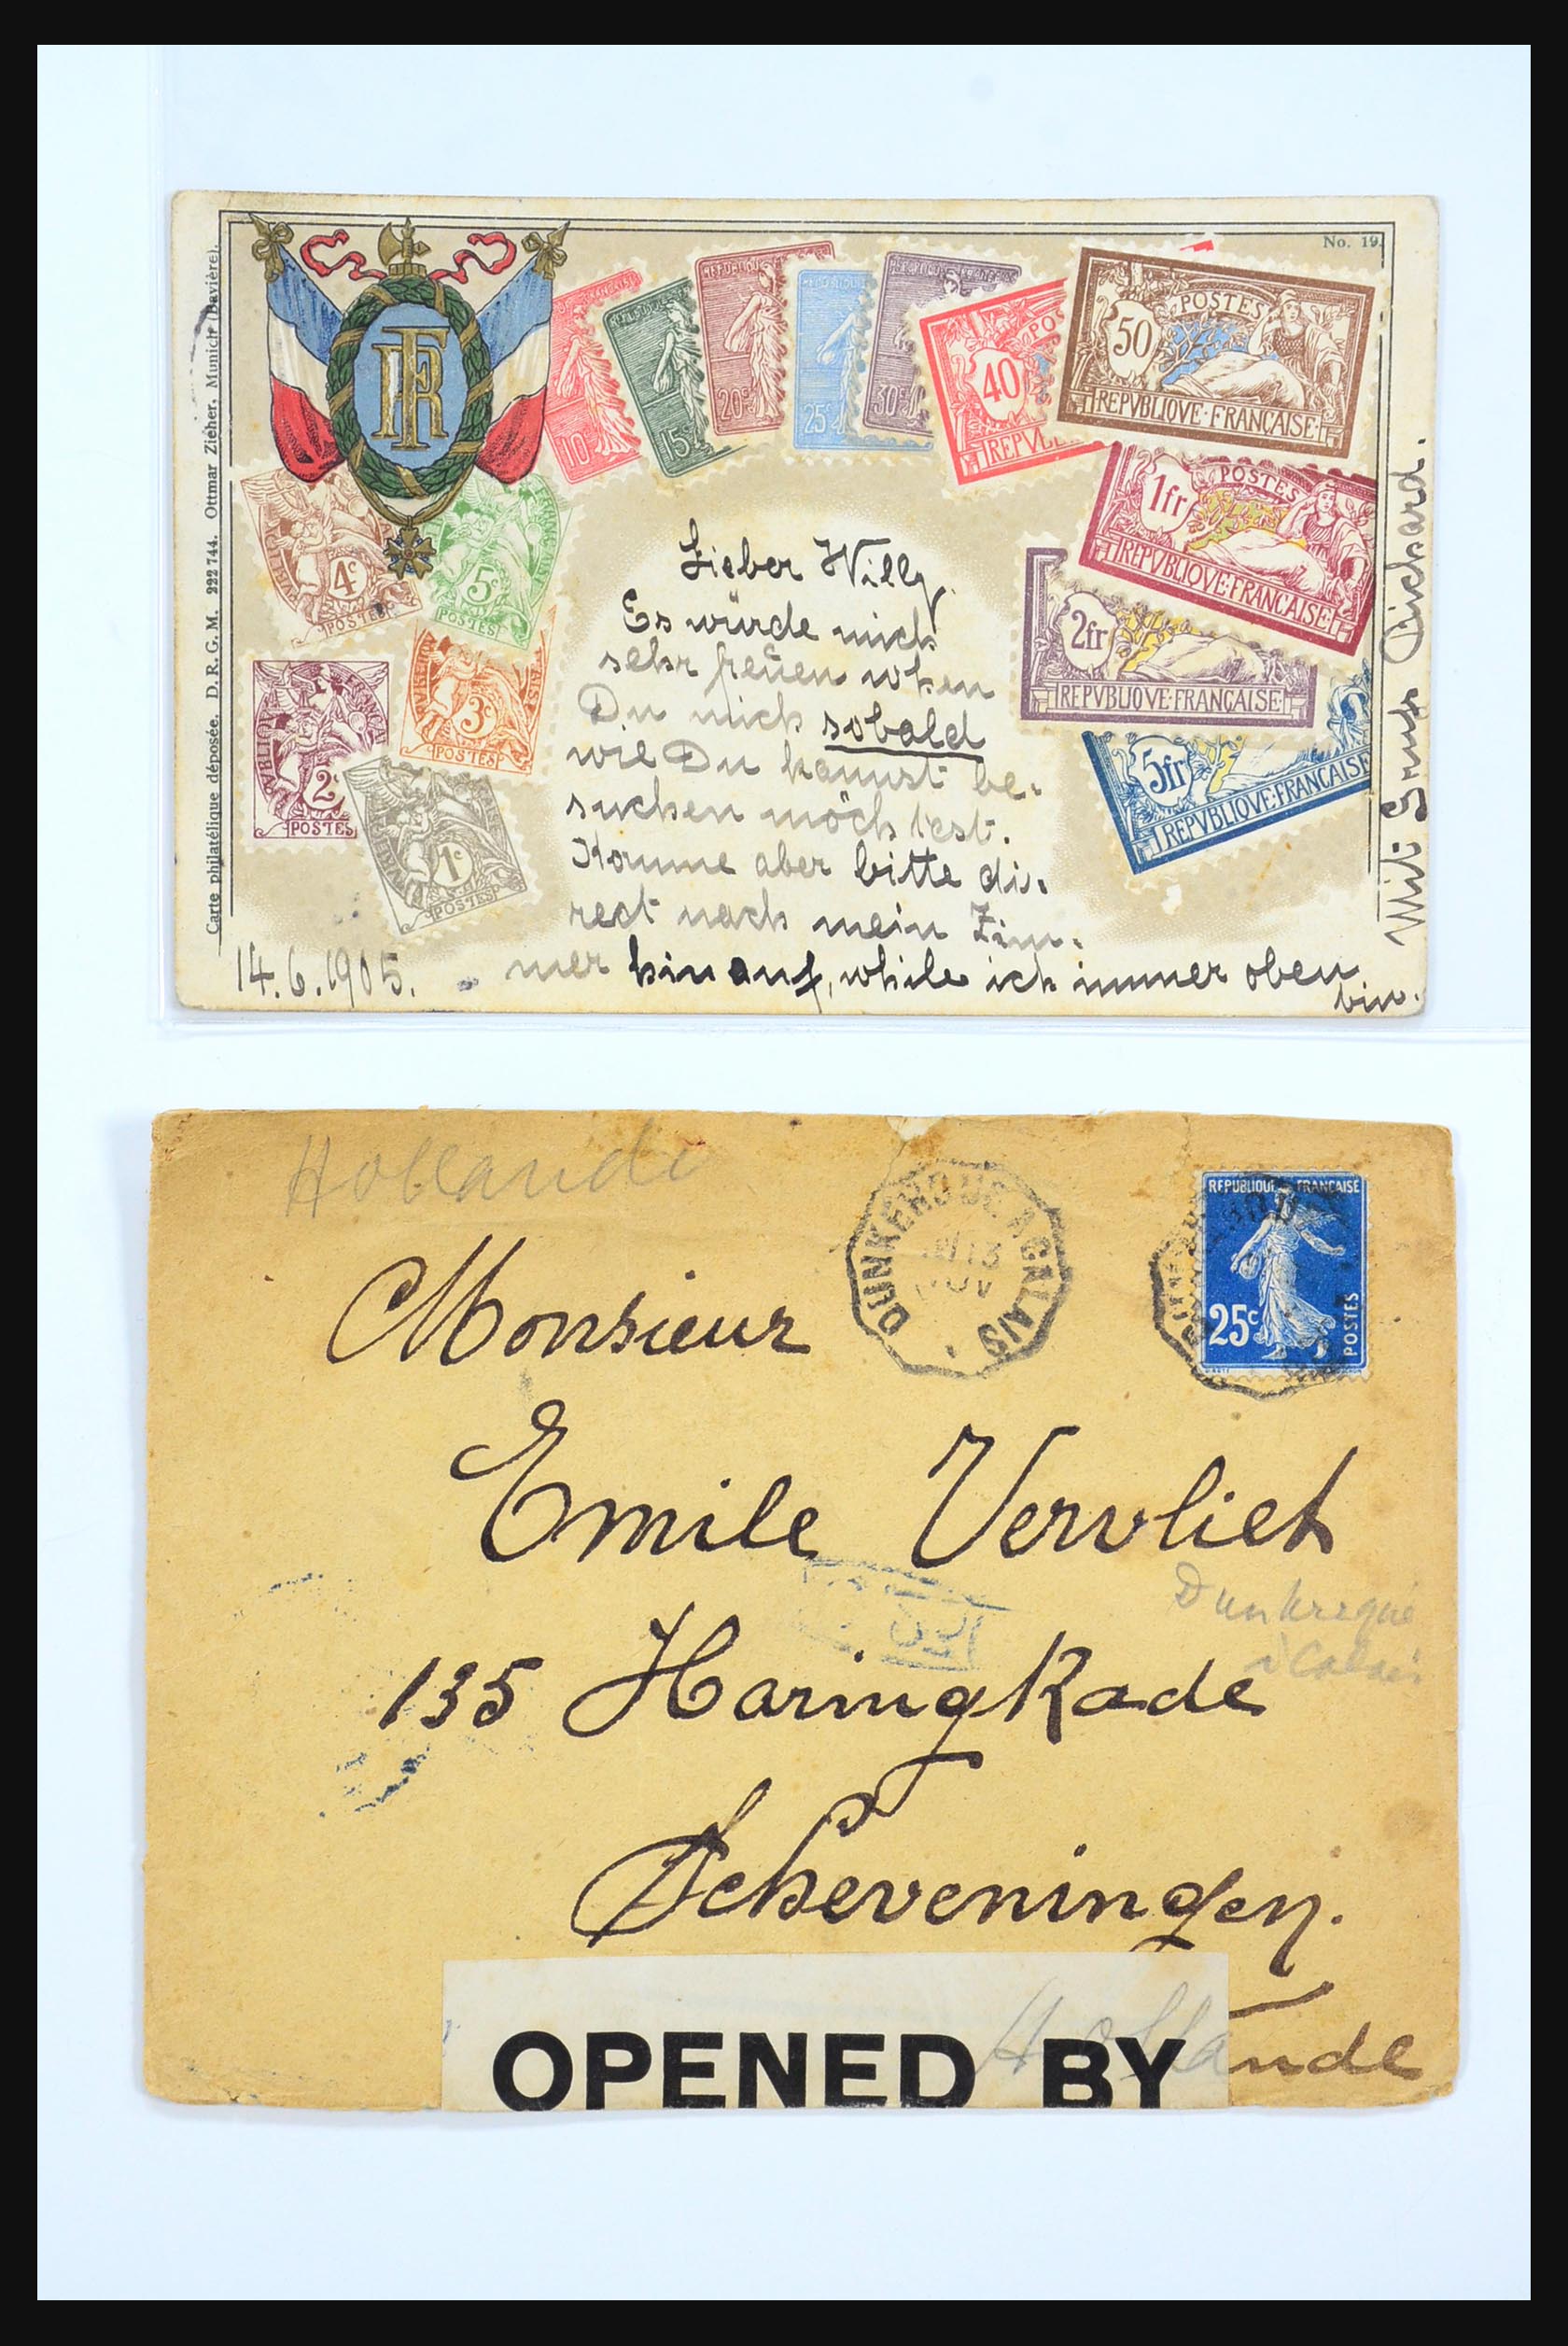 No. 19.
Carte philatélique déposée. D. R. G. M. 222 744. Ottmar Zieher, Munich (Bavière).
RF
10c
15c
20c
25c
30c
40
REPVBL
POSTES
50
REPVBLIQVE·FRANÇAISE
POSTES
1fr
REPVBLIQVE·FRANÇAISE
2fr
REPVBLIQVE·FRANÇAISE
5fr
REPVBLIQVE·FRANÇAISE
4c
POSTES
5c
POSTES
3c
POSTES
2c
POSTES
1c
POSTES
Lieber Willy.
Es würde mich
sehr freuen when
Du mich sobald
wie Du kannst be-
suchen möchtest.
Komme aber bitte di-
rect nach mein Zim-
mer hinauf, while ich immer oben
bin.
14.6.1905.
Mit Gruss Richard.
Hollande
DUNKERQUE A CALAIS
13
NOV
REPUBLIQUE FRANÇAISE
25c
POSTES
Monsieur
Emile Vervliet
Dunkerque
à Calais
135 Haringkade
Scheveningen.
Hollande
OPENED BY